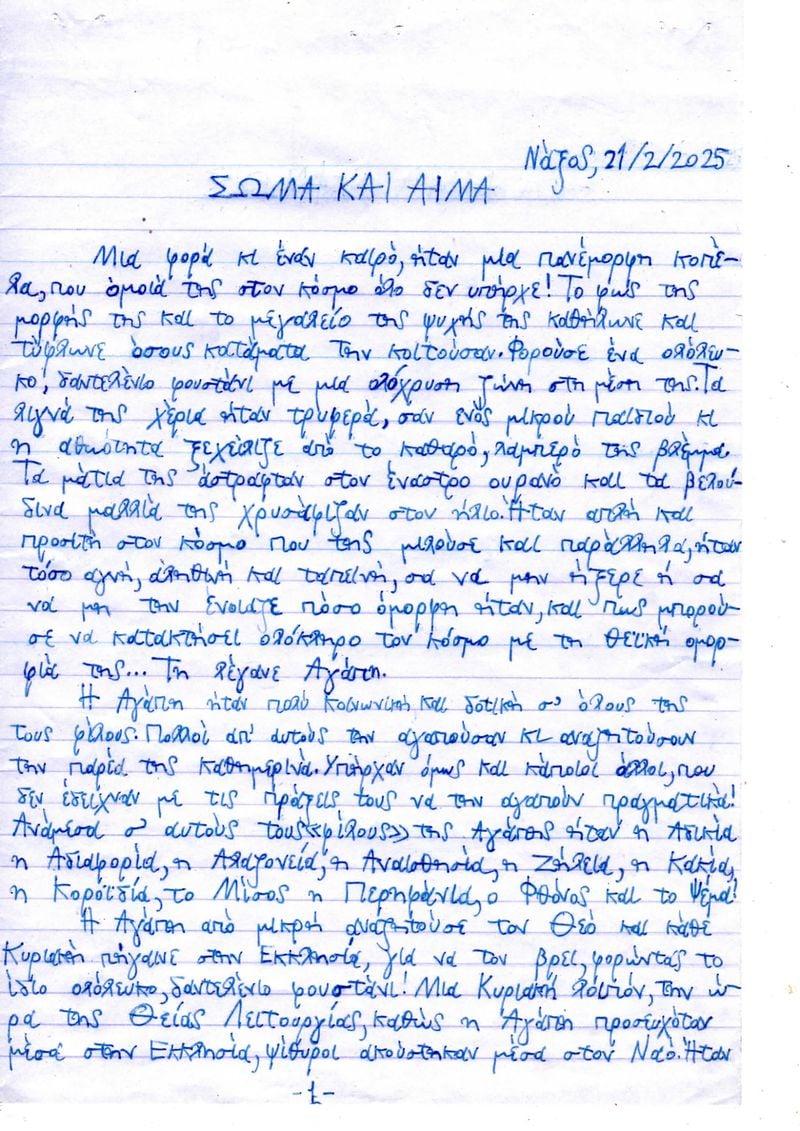 Νάξος, 21/2/2025
ΣΩΜΑ ΚΑΙ ΑΙΜΑ
Μια φορά κι έναν καιρό, ήταν μία πανέμορφη κοπέ-
λα, που όμοιά της στον κόσμο όλο δεν υπήρχε! Το φως της
μορφής της και το μεγαλείο της ψυχής της καθήλωνε και
τύφλωνε όσους κατάματα την κοιτούσαν. Φορούσε ένα ολόλευ-
κο, δαντελένιο φουστάνι με μια ολόχρυση ζώνη στη μέση της. Τα
λιγνά της χέρια ήταν τρυφερά, σαν ενός μικρού παιδιού κι
η αθωότητα ξεχείλιζε από το καθαρό, λαμπερό της βλέμμα.
Τα μάτια της άστραφταν στον έναστρο ουρανό και τα βελού-
δινα μαλλιά της χρυσάφιζαν στον ήλιο. Ήταν απλή και
προσιτή στον κόσμο που της μιλούσε και παράλληλα, ήταν
τόσο αγνή, αληθινή και ταπεινή, σα να μην ήξερε ή σα
να μη την ένοιαζε πόσο όμορφη ήταν, και πως μπορού-
σε να κατακτήσει ολόκληρο τον κόσμο με τη θεϊκή ομορ-
φιά της... Τη λέγανε Αγάπη.
Η Αγάπη ήταν πολύ κοινωνική και δοτική σ' όλους της
τους φίλους. Πολλοί απ' αυτούς την αγαπούσαν κι αναζητούσαν
την παρέα της καθημερινά. Υπήρχαν όμως και κάποιοι άλλοι, που
δεν έδειχναν με τις πράξεις τους να την αγαπούν πραγματικά!
Ανάμεσα σ' αυτούς τους «φίλους» της Αγάπης ήταν η Αδικία
η Αδιαφορία, η Αλαζονεία, η Αναισθησία, η Ζήλεια, η Κακία,
η Κοροϊδία, το Μίσος η Περηφάνια, ο Φθόνος και το Ψέμα!
Η Αγάπη από μικρή αναζητούσε τον Θεό και κάθε
Κυριακή πήγαινε στην Εκκλησία, για να τον βρει, φορώντας το
ίδιο ολόλευκο, δαντελένιο φουστάνι! Μια Κυριακή λοιπόν, την ώ-
ρα της Θείας Λειτουργίας, καθώς η Αγάπη προσευχόταν
μέσα στην Εκκλησία, ψίθυροι ακούστηκαν μέσα στον Ναό. Ήταν
-1-